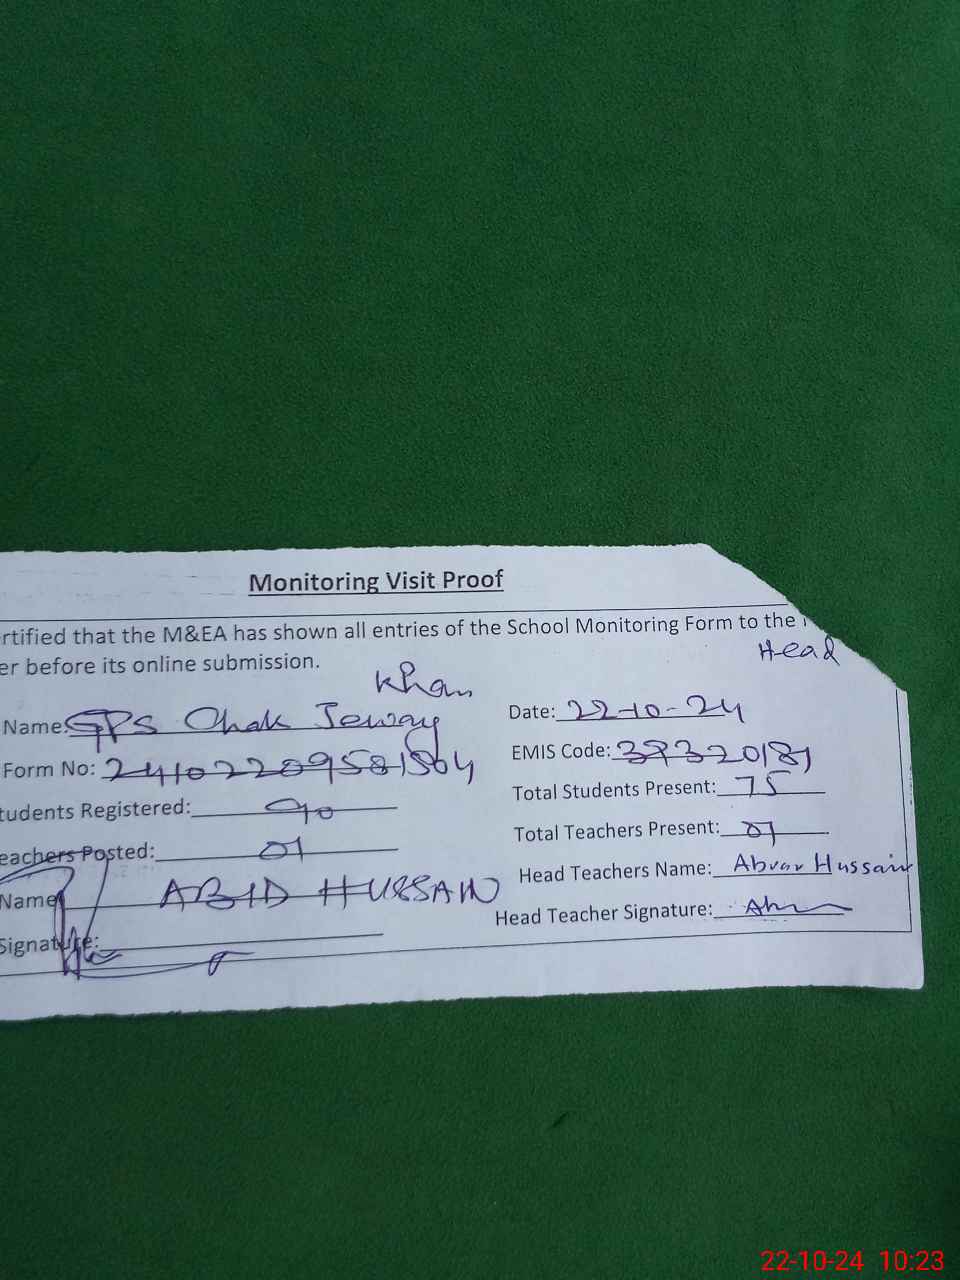 Monitoring Visit Proof
rtified that the M&EA has shown all entries of the School Monitoring Form to the
Head
er before its online submission.
Khan
Name: GPS Chak Jeway
Date: 22-10-24
Form No: 24102209581564
EMIS Code: 37320181
tudents Registered: 90
Total Students Present: 75
eachers Posted: 01
Total Teachers Present: 01
Name ABID HUSSAIN
Head Teachers Name: Abrar Hussain
Signature:
Head Teacher Signature:
22-10-24 10:23